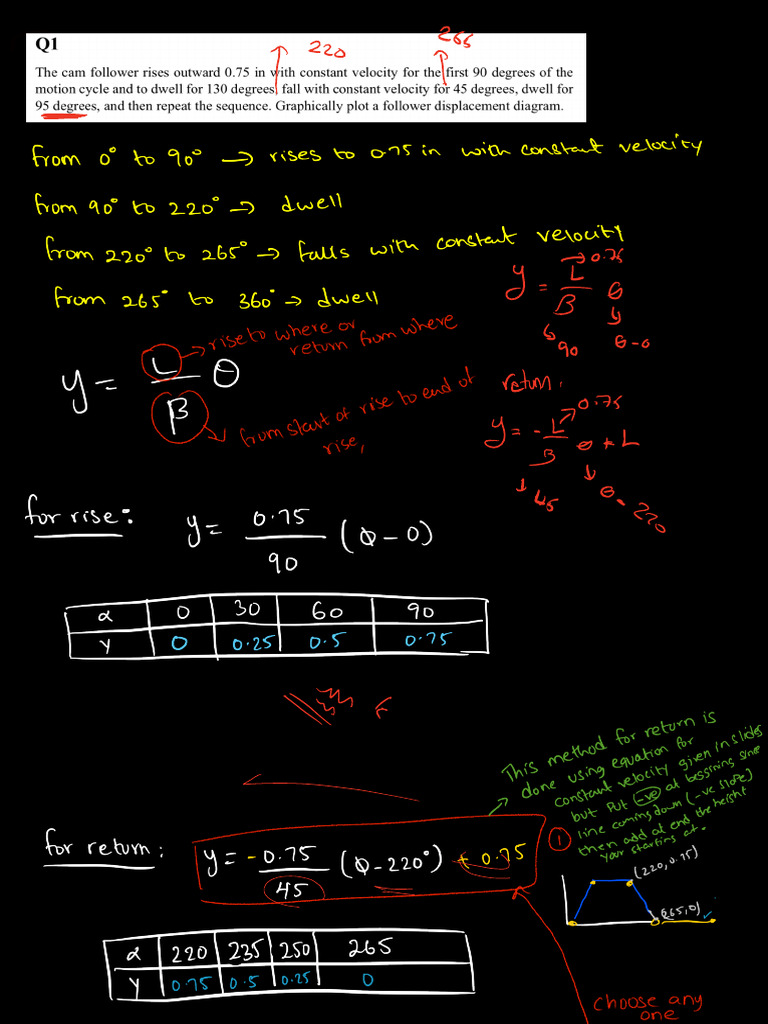 220
265
Q1
The cam follower rises outward 0.75 in with constant velocity for the first 90 degrees of the
motion cycle and to dwell for 130 degrees, fall with constant velocity for 45 degrees, dwell for
95 degrees, and then repeat the sequence. Graphically plot a follower displacement diagram.
from 0° to 90° → rises to 0.75 in with constant velocity
from 90° to 220° → dwell
from 220° to 265° → falls with constant velocity
from 265° to 360° → dwell
y = L/β θ
→ 0.75
90
θ-0
y = L/β θ
→ rise to where or
return from where
from start of rise to end of
rise,
return,
y = -L/β θ + L
0.75
45
θ-220
for rise: y = 0.75/90 (θ-0)
α 0 30 60 90
y 0 0.25 0.5 0.75
This method for return is
done using equation for
constant velocity given in slides
but put -ve at beggining since
line coming down (-ve slope)
then add at end the height
your starting at.
1
for return: y = -0.75/45 (θ-220°) + 0.75
(220, 0.75)
(265, 0)
α 220 235 250 265
y 0.75 0.5 0.25 0
choose any
one